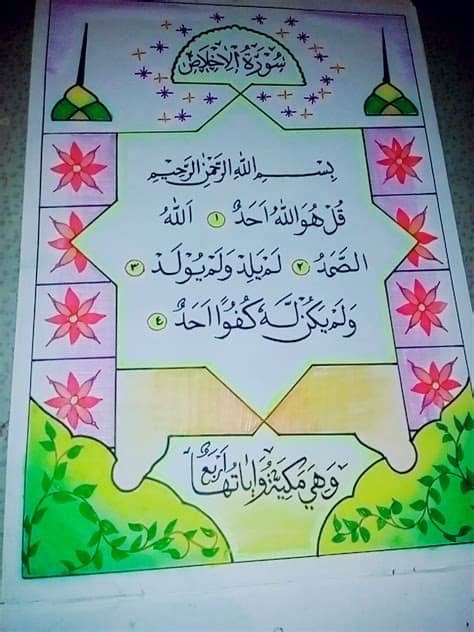 سُوْرَةُ الْاِخْلَاصْ
بِسْمِ اللهِ الرَّحْمٰنِ الرَّحِيْمِ
قُلْ هُوَ اللهُ اَحَدٌ ١ اَللهُ
الصَّمَدُ ٢ لَمْ يَلِدْ وَلَمْ يُوْلَدْ ٣
وَلَمْ يَكُنْ لَّهٗ كُفُوًا اَحَدٌ ٤
وَهِيَ مَكِّيَّةٌ وَاٰيَاتُهَا اَرْبَعٌ